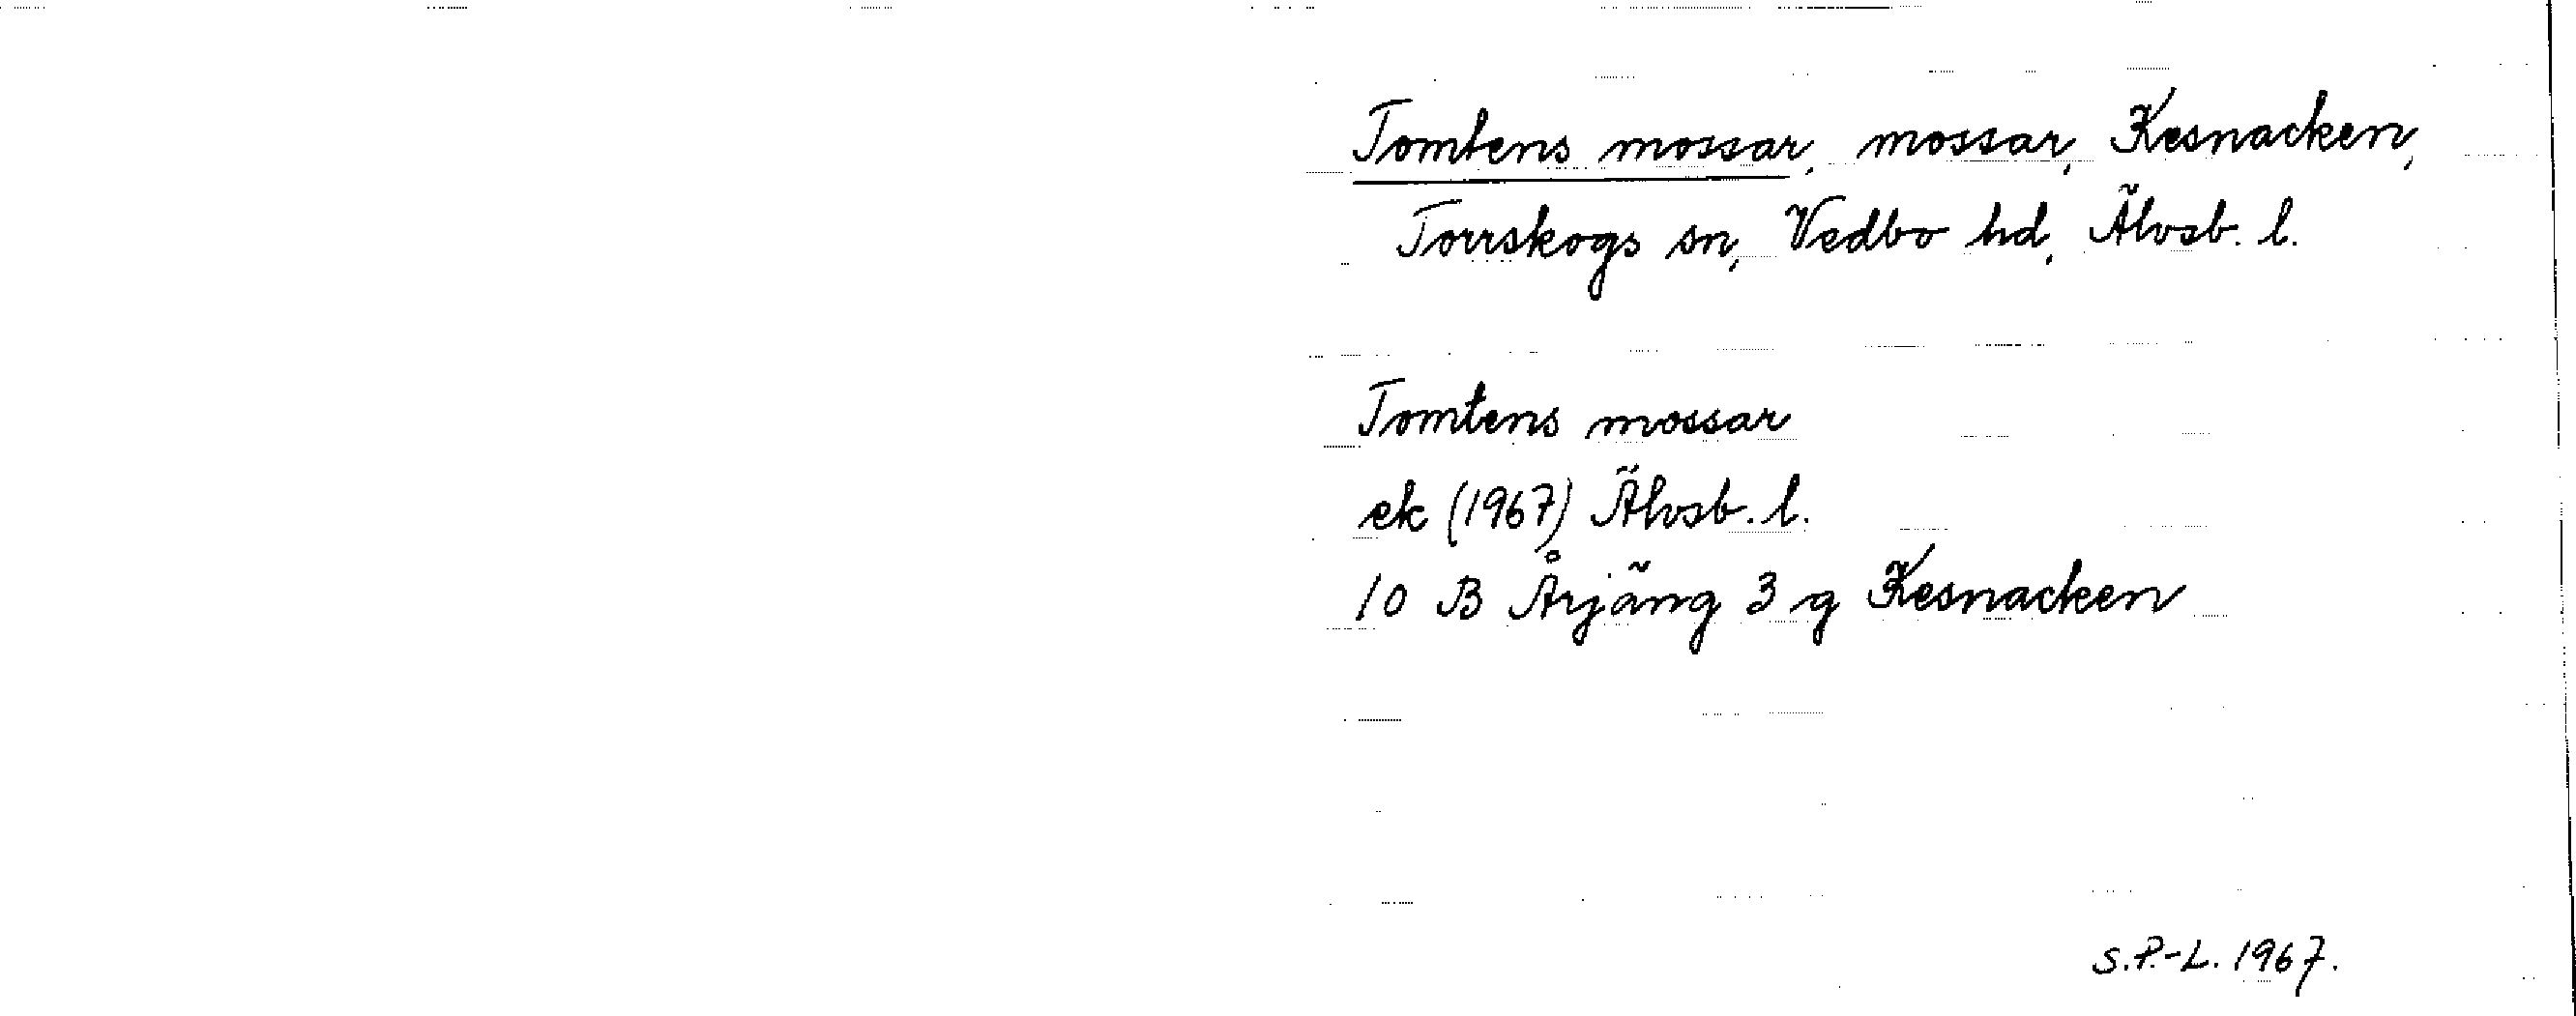 Tomtens mossar, mossar, Kesnacken,
Torrskogs sn, Vedbo hd, Älvsb. l.
Tomtens mossar
ek (1967) Älvsb. l.
10 B Årjäng 3 g Kesnacken
S.P.-L. 1967.